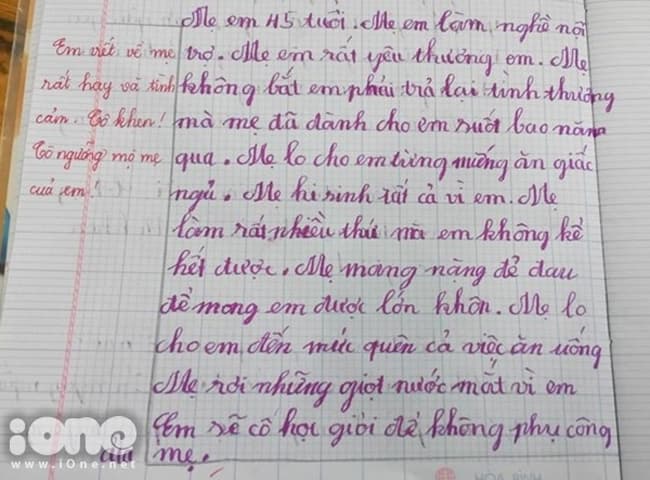 Mẹ em 45 tuổi. Mẹ em làm nghề nội
trợ. Mẹ em rất yêu thương em. Mẹ
không bắt em phải trả lại tình thương
mà mẹ đã dành cho em suốt bao năm
qua. Mẹ lo cho em từng miếng ăn giấc
ngủ. Mẹ hi sinh tất cả vì em. Mẹ
làm rất nhiều thứ mà em không kể
hết được. Mẹ mang nặng đẻ đau
để mong em được lớn khôn. Mẹ lo
cho em đến mức quên cả việc ăn uống
Mẹ rơi những giọt nước mắt vì em
Em sẽ cố học giỏi để không phụ công
của mẹ.
Em viết về mẹ
rất hay và tình
cảm. Cô khen!
Cô ngưỡng mộ mẹ
của em!
iOne
www.iOne.net